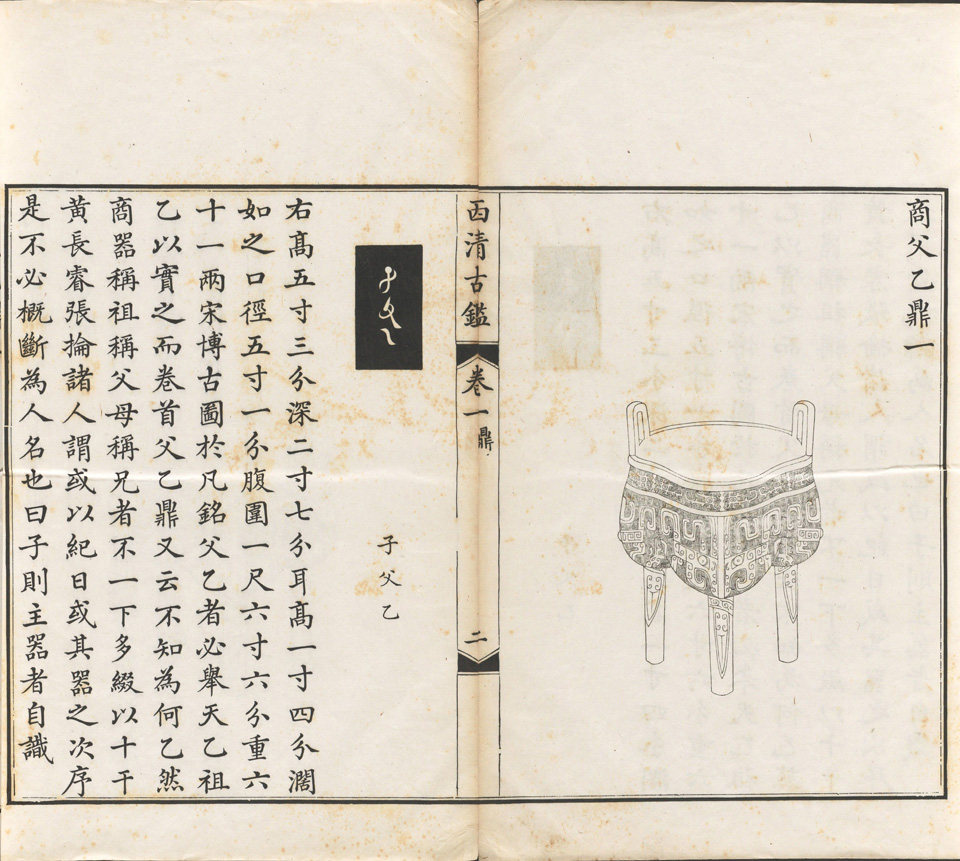 商父乙鼎一
西清古鑑
卷一 鼎
二
子父乙
子父乙
右高五寸三分深二寸七分耳高一寸四分濶
如之口徑五寸一分腹圍一尺六寸六分重六
十一兩宋博古圖於凡銘父乙者必舉天乙祖
乙以實之而卷首父乙鼎又云不知為何乙然
商器稱祖稱父母稱兄者不一下多綴以十干
黃長睿張掄諸人謂或以紀日或其器之次序
是不必概斷為人名也曰子則主器者自識